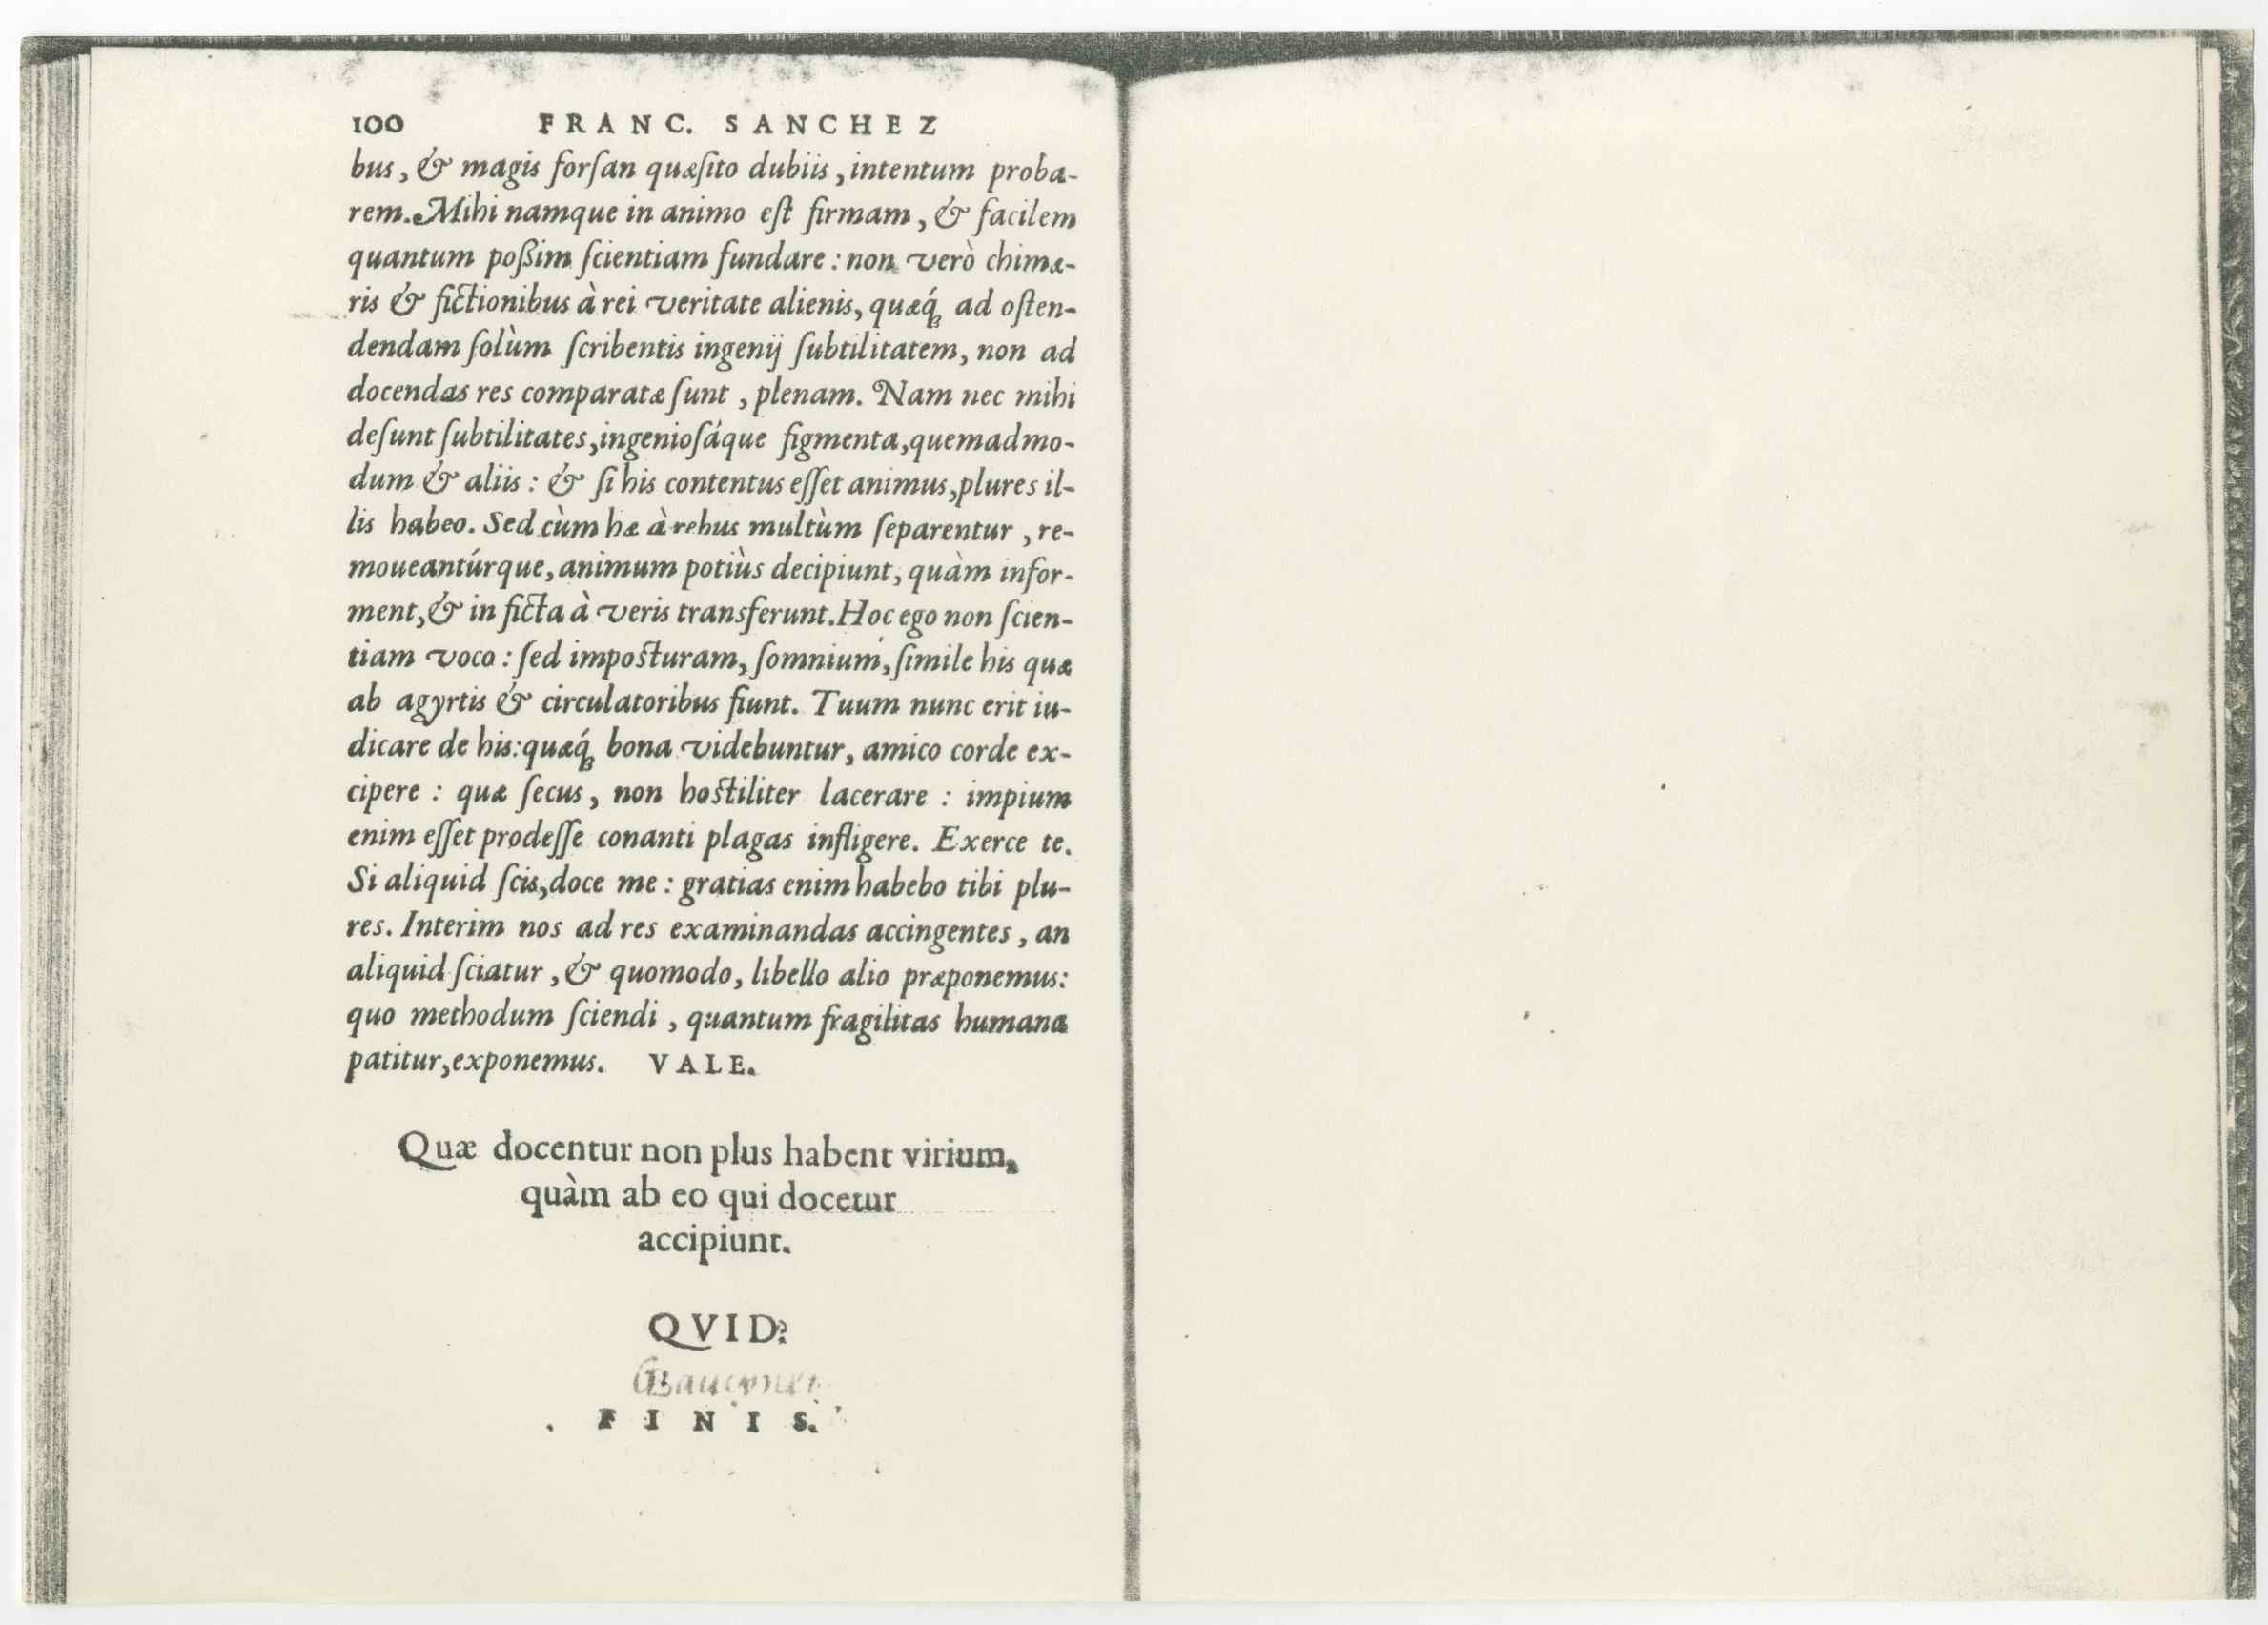 100 FRANC. SANCHEZ
bus, & magis forſan quæſito dubiis, intentum proba-
rem. Mihi namque in animo eſt firmam, & facilem
quantum poßim ſcientiam fundare: non verò chimæ-
ris & fictionibus à rei veritate alienis, quæq́ꝫ ad oſten-
dendam ſolùm ſcribentis ingenij ſubtilitatem, non ad
docendas res comparatæ ſunt, plenam. Nam nec mihi
deſunt ſubtilitates, ingenioſáque figmenta, quemadmo-
dum & aliis: & ſi his contentus eſſet animus, plures il-
lis habeo. Sed cùm hæ à rebus multùm ſeparentur, re-
moueantúrque, animum potiùs decipiunt, quàm infor-
ment, & in ficta à veris transferunt. Hoc ego non ſcien-
tiam voco: ſed impoſturam, ſomnium, ſimile his quæ
ab agyrtis & circulatoribus fiunt. Tuum nunc erit iu-
dicare de his: quæq́ꝫ bona videbuntur, amico corde ex-
cipere: quæ ſecus, non hoſtiliter lacerare: impium
enim eſſet prodeſſe conanti plagas infligere. Exerce te.
Si aliquid ſcis, doce me: gratias enim habebo tibi plu-
res. Interim nos ad res examinandas accingentes, an
aliquid ſciatur, & quomodo, libello alio præponemus:
quo methodum ſciendi, quantum fragilitas humana
patitur, exponemus. VALE.
Quæ docentur non plus habent virium,
quàm ab eo qui docetur
accipiunt.
QVID?
FINIS.